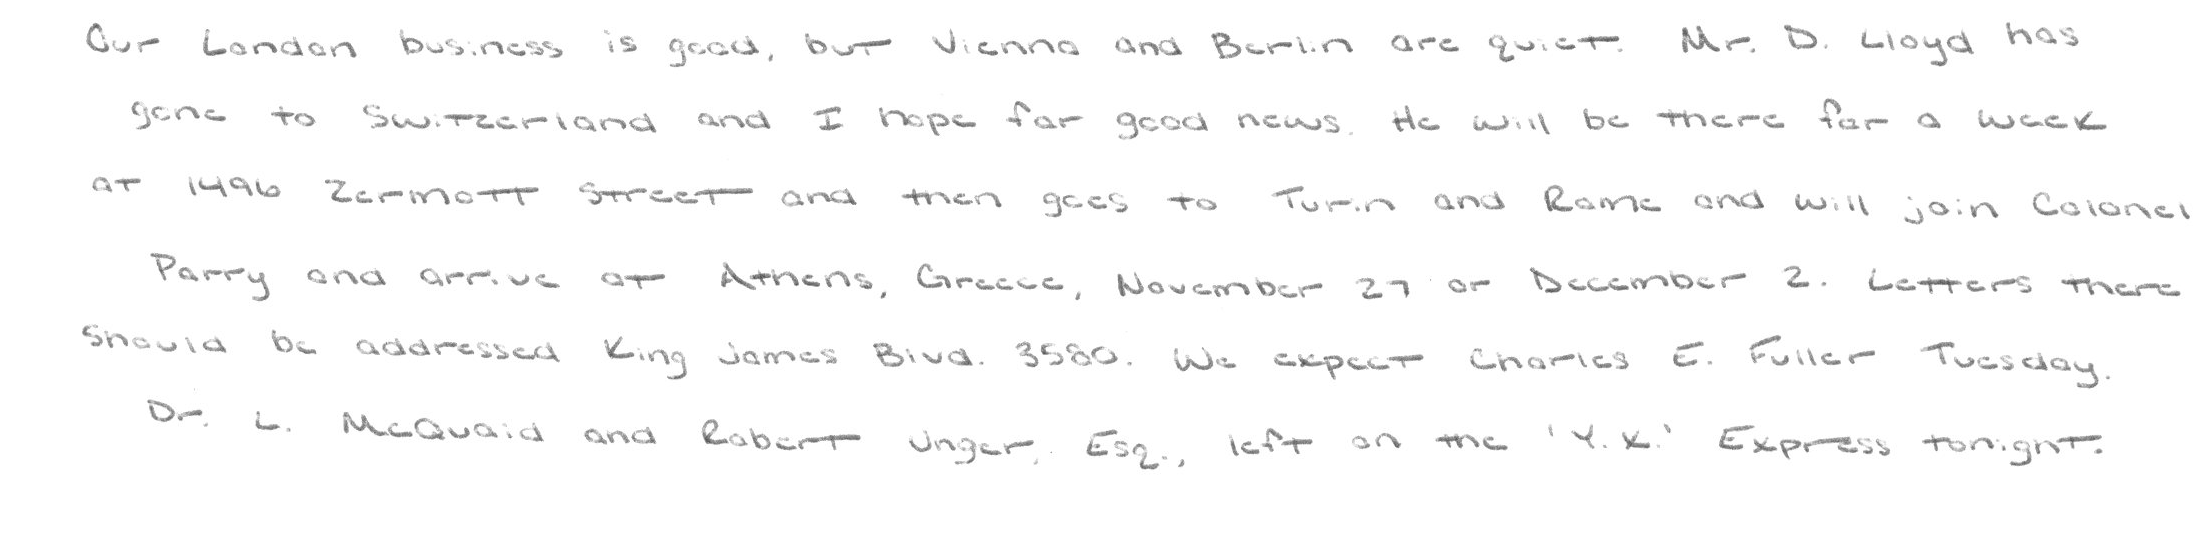 Our London business is good, but Vienna and Berlin are quiet. Mr. D. Lloyd has
gone to Switzerland and I hope for good news. He will be there for a week
at 1496 Zermott Street and then goes to Turin and Rome and will join Colonel
Parry and arrive at Athens, Greece, November 27 or December 2. Letters there
should be addressed King James Blvd. 3580. We expect Charles E. Fuller Tuesday.
Dr. L. McQuaid and Robert Unger, Esq., left on the 'Y.X.' Express tonight.